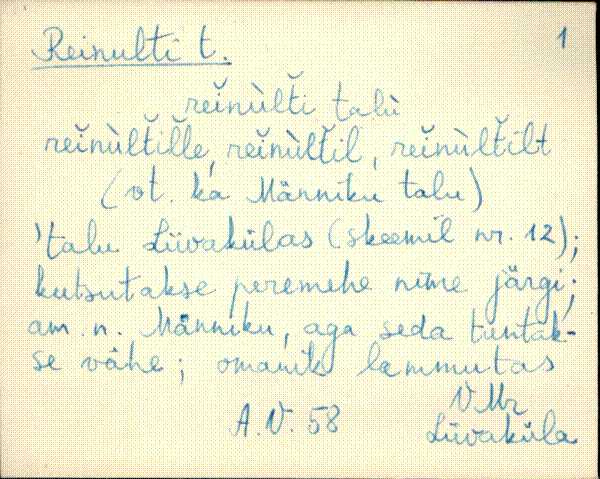 Reinulti t. 1
rei̮nùlt̆i talù
rei̮nùlt̆il̆le, rei̮nùlt̆il, rei̮nùlt̆ilt
(vt. ka Männiku talu)
'talu Liivakülas (skeemil nr. 12);
kutsutakse peremehe nime järgi;
am. n. Männiku, aga seda tuntak-
se vähe; omanik lammutas
A.V. 58 V Mr
Liivaküla